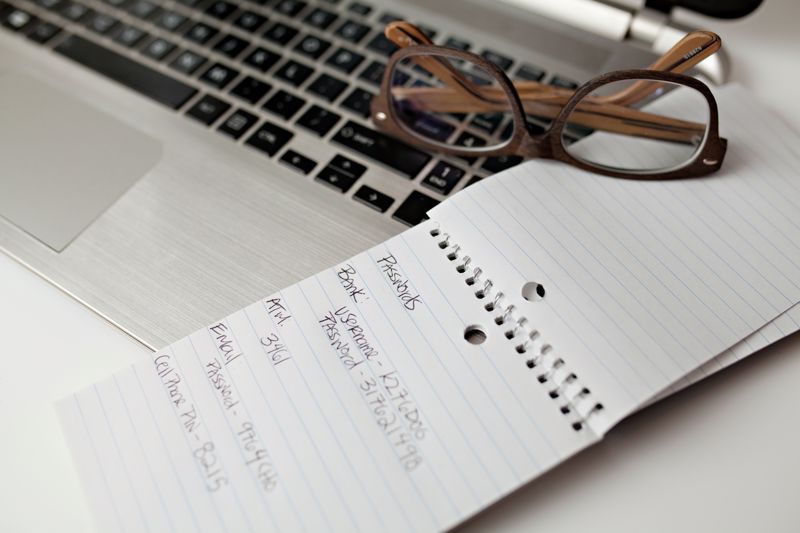 Passwords
Bank:
Username - K276D06
Password - 317621498
ATM. 3461
Email
Password - 9764CHO
Cell Phone PIN - 8215